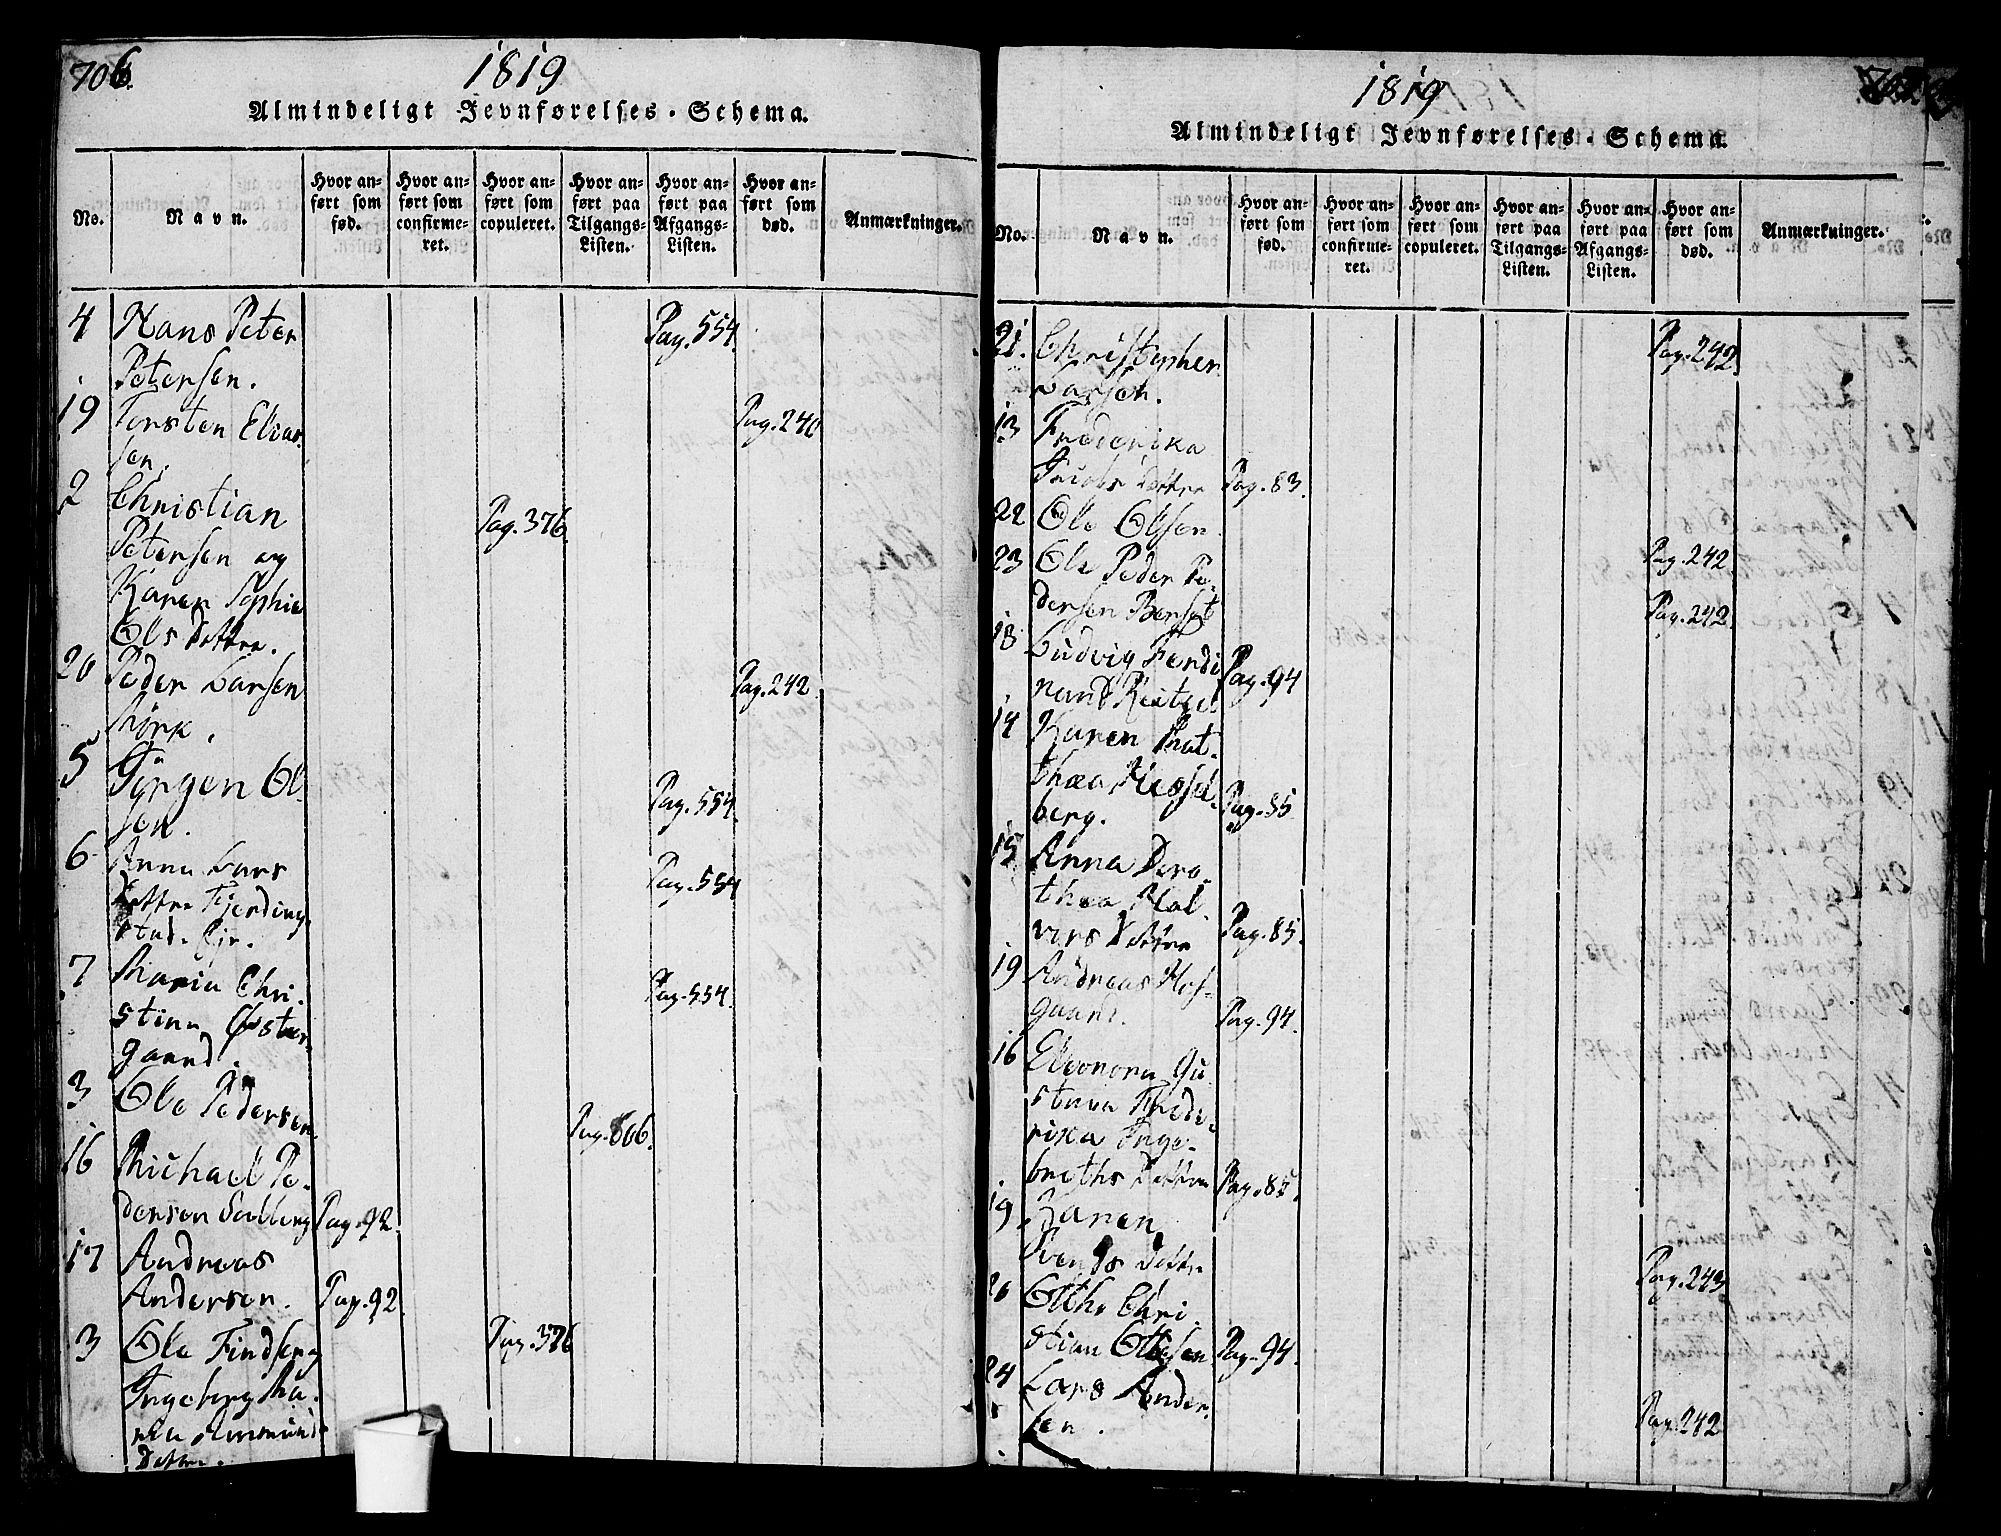 706.
1819
Almindeligt Jevnførelses-Schema.
No.
Navn.
Hvor anført som fød.
Hvor anført som confirmeret.
Hvor anført som copuleret.
Hvor anført paa Tilgangs-Listen.
Hvor anført paa Afgangs-Listen.
Hvor anført som død.
Anmærkninger.
4 Hans Peter Pag. 554.
Petersen.
19 Torsten Elias Pag. 240
sen.
2 Christian Pag. 376.
Petersen og
Karen Sophie
Ols Datter.
20 Peder Larsen Pag. 242
Mörk.
5 Jörgen Ol- Pag. 554.
sen.
6 Anna Lars Pag. 554
Datter Fjerding-
stad. Ejr.
7 Maria Chri- Pag. 554.
stina Öster-
gaard.
3 Ole Pedersen. Pag. 606.
16 Michael Pe-
dersen Solberg Pag. 92.
17 Andreas
Andersen. Pag. 92
3 Ole Findsen og Pag. 376
Ingeborg Ma-
ria Ammunds
Datter.
1819
Almindeligt Jevnførelses-Schema.
No.
Navn.
Hvor anført som fød.
Hvor anført som confirmeret.
Hvor anført som copuleret.
Hvor anført paa Tilgangs-Listen.
Hvor anført paa Afgangs-Listen.
Hvor anført som død.
Anmærkninger.
21. Christopher Pag. 242.
Larsen.
13 Frederika
Jacobs Datter Pag. 83.
22 Ole Olsen Pag. 242
23 Ole Peder Pe-
dersen Berset Pag. 242.
18 Ludvig Ferdi
nand Reitzel Pag. 94
14 Karen Mat-
thea Hessel-
berg. Pag. 85
15 Anna Doro-
thea Hal-
vors Datter Pag. 85.
19 Andreas Hof-
gaard. Pag. 94.
16 Eleonora Gu
stava Frede-
rika Inge-
breths Datter Pag. 85.
19 Karen
Svends Datter Pag. 243.
20 Otho Chri-
stian Ottesen Pag. 94.
24 Lars Ander-
sen. Pag. 242